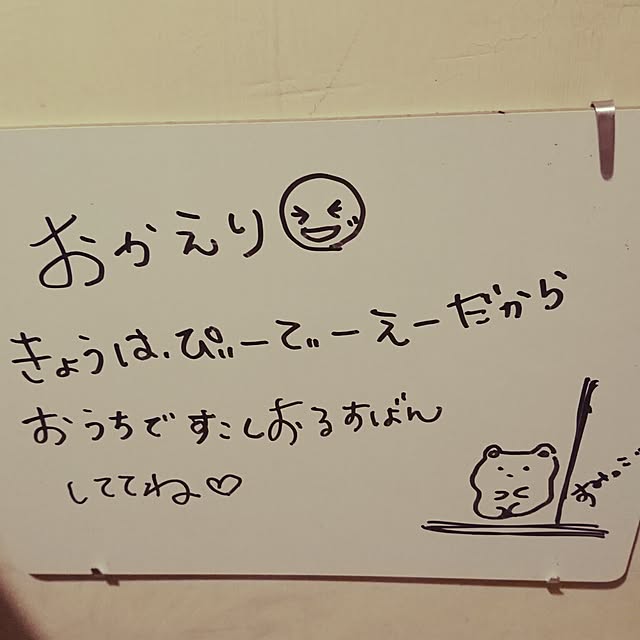 おかえり
きょうは、ぴーでーえーだから
おうちですこしおるすばん
しててね♡